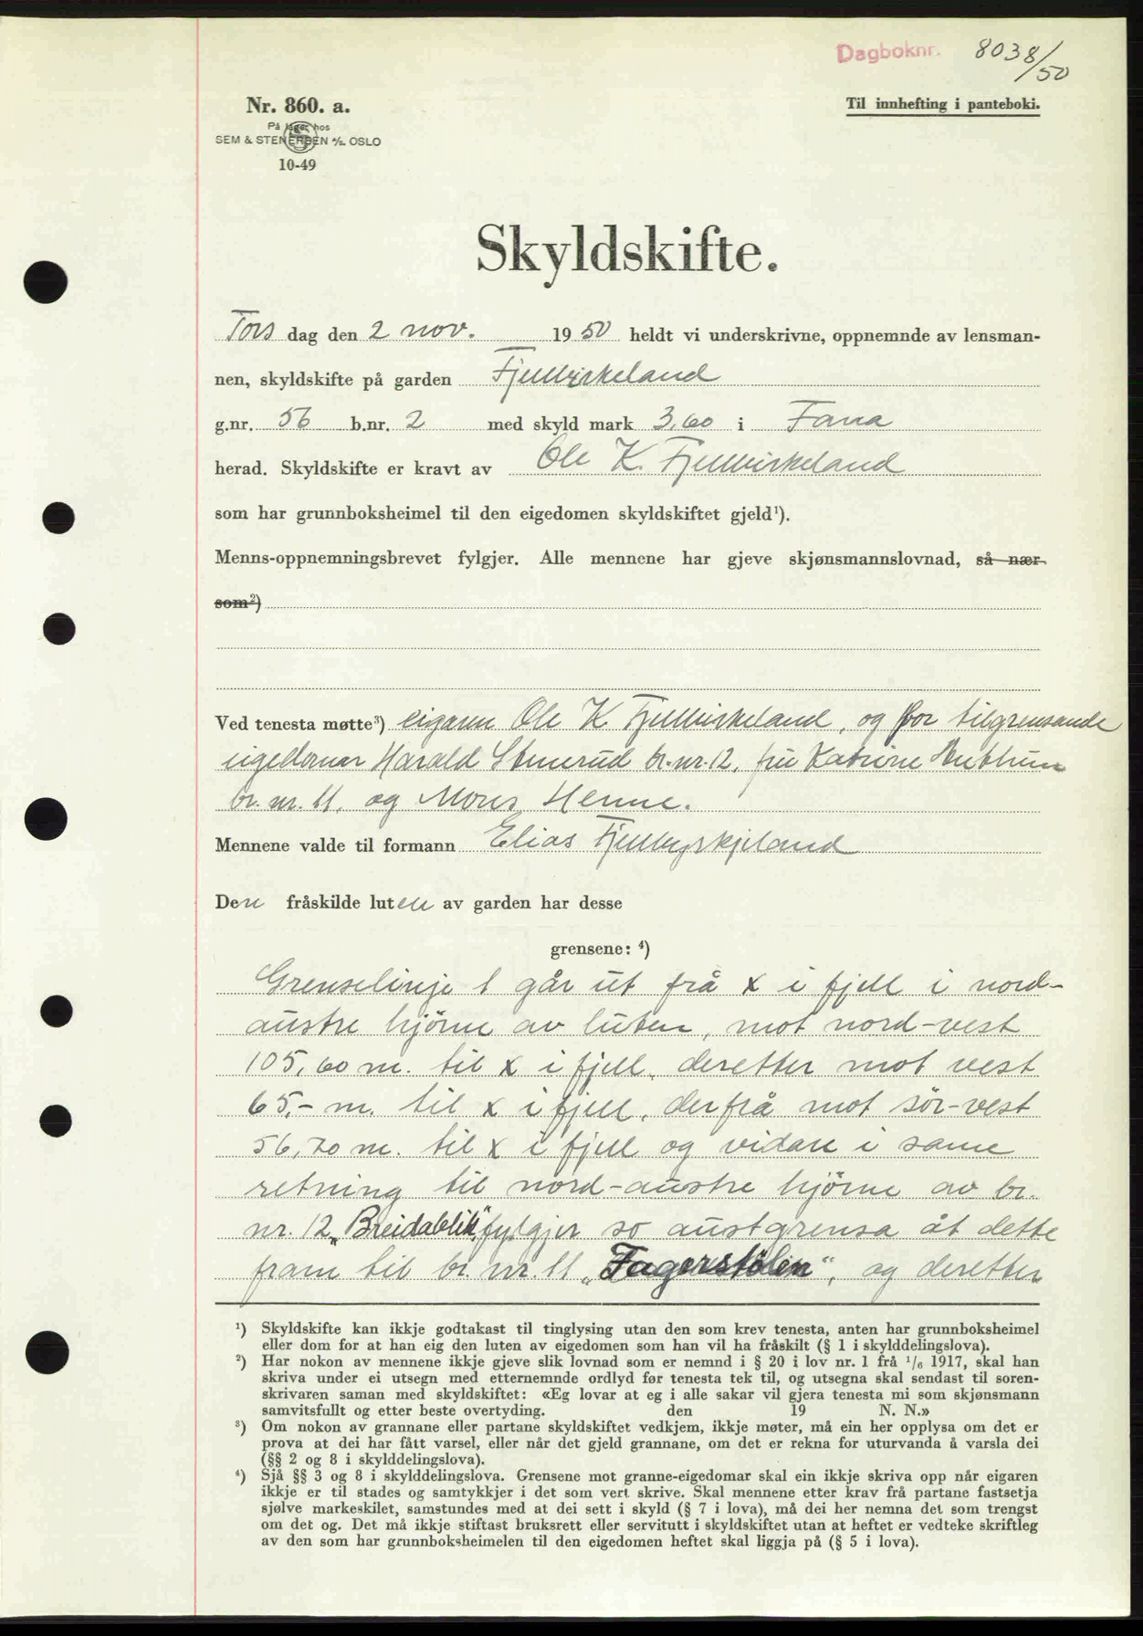 Dagboknr. 8038/50
Nr. 860. a.
Til innhefting i panteboki.
På lager hos
SEM & STENERSEN A/S. OSLO
10-49
Skyldskifte.
Tors dag den 2 nov. 1950 heldt vi underskrivne, oppnemnde av lensman-
nen, skyldskifte på garden Fjellbirkeland
g.nr. 56 b.nr. 2 med skyld mark 3,60 i Fana
herad. Skyldskifte er kravt av Ole K. Fjellbirkeland
som har grunnboksheimel til den eigedomen skyldskiftet gjeld¹).
Menns-oppnemningsbrevet fylgjer. Alle mennene har gjeve skjønsmannslovnad, så nær-
som²)
Ved tenesta møtte³) eigaren Ole K Fjellbirkeland, og for tilgrensande
eigedomar Harald br.nr. 12, fru Katrine
br. nr. 11, og Mons Henne.
Mennene valde til formann Elias Fjellbyrkjeland
Den fråskilde luten av garden har desse
grensene: ⁴)
Grenselinje 1 går ut frå x i fjell i nord-
austre hjörne av luten, mot nord-vest
105,60 m. til x i fjell, deretter mot vest
65,- m. til x i fjell, derfrå mot sör-vest
56,70 m. til x i fjell og vidare i same
retning til nord-austre hjörne av br.
nr. 12 „Breidablik", fylgjer so austgrensa åt dette
fram til br. nr. 11 „Fagerstölen", og deretter
¹) Skyldskifte kan ikkje godtakast til tinglysing utan den som krev tenesta, anten har grunnboksheimel
eller dom for at han eig den luten av eigedomen som han vil ha fråskilt (§ 1 i skylddelingslova).
²) Har nokon av mennene ikkje gjeve slik lovnad som er nemnd i § 20 i lov nr. 1 frå ¹/₆ 1917, skal han
skriva under ei utsegn med etternemnde ordlyd før tenesta tek til, og utsegna skal sendast til soren-
skrivaren saman med skyldskiftet: «Eg lovar at eg i alle sakar vil gjera tenesta mi som skjønsmann
samvitsfullt og etter beste overtyding. den 19 N. N.»
³) Om nokon av grannane eller partane skyldskiftet vedkjem, ikkje møter, må ein her opplysa om det er
prova at dei har fått varsel, eller når det gjeld grannane, om det er rekna for uturvanda å varsla dei
(§§ 2 og 8 i skylddelingslova).
⁴) Sjå §§ 3 og 8 i skylddelingslova. Grensene mot granne-eigedomar skal ein ikkje skriva opp når eigaren
ikkje er til stades og samtykkjer i det som vert skrive. Skal mennene etter krav frå partane fastsetja
sjølve markeskilet, samstundes med at dei sett i skyld (§ 7 i lova), må dei her nemna det som trengst
om det og. Det må ikkje stiftast bruksrett eller servitutt i skyldskiftet utan at heftet er vedteke skriftleg
av den som har grunnboksheimelen til den eigedomen heftet skal liggja på (§ 5 i lova).